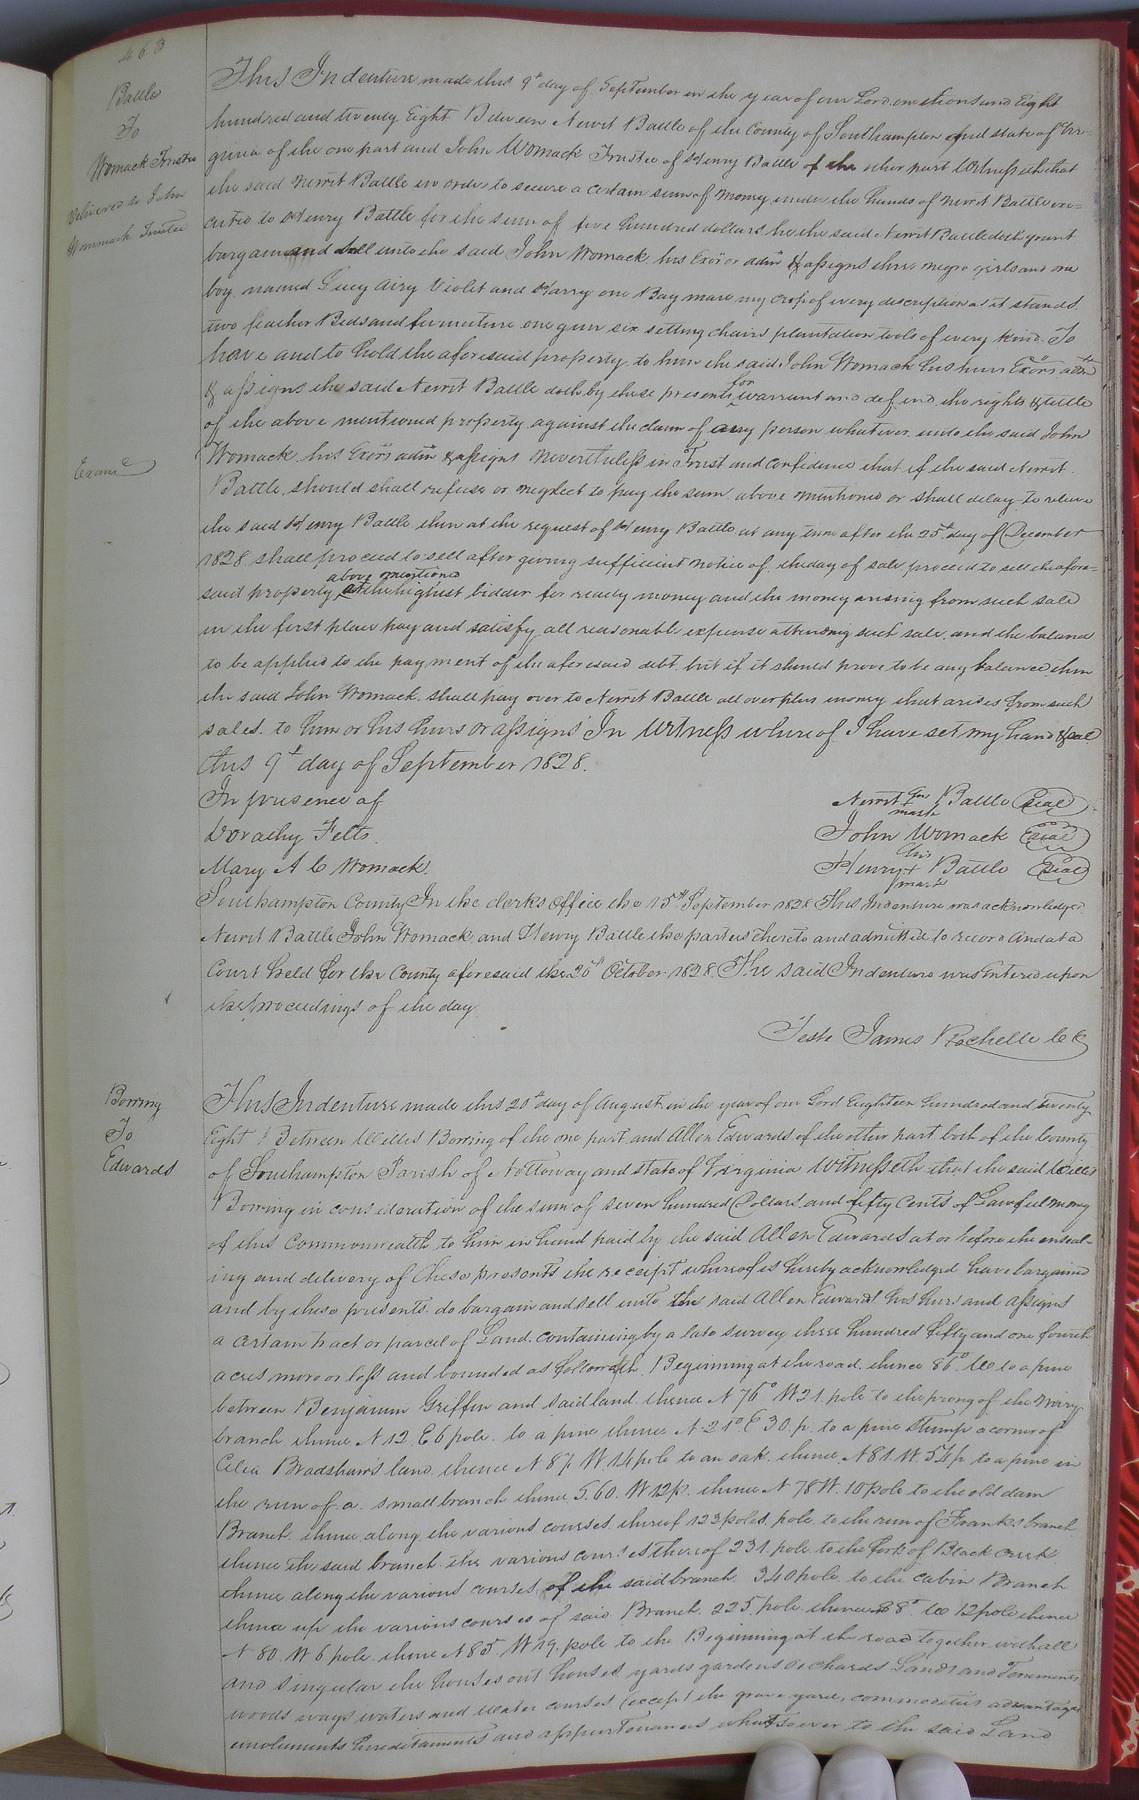 463
Battle
To
Womack Trustee
Delivered to John
Wommack Trustee
This Indenture made this 9th day of September in the year of our Lord one thousand Eight
hundred and twenty Eight Between Newit Battle of the County of Southampton and state of Vir-
ginia of the one part and John Womack Trustee of Henry Battle of the other part Witnesseth that
the said Newit Battle in order to secure a certain sum of money under the hands of Newit Battle exe-
cuted to Henry Battle for the sum of five hundred dollars he the said Newit Battle doth grant
bargain and sell unto the said John Womack his Exōr or adm̄ & assigns three negro girls and one
boy named Lucy Airy Violet and Harry one Bay mare my crop of every description as it stands
two feather Beds and furniture one gun six setting chairs plantation tools of every kind. To
have and to hold the aforesaid property to him the said John Womack his heirs Exōrs adm
& assigns the said Newit Battle doth by these presents for warrant and defend the rights & title
of the above mentioned property against the claim of any person whatever unto the said John
Examd
Womack his Exōrs adm̄ & assigns Nevertheless in Trust and confidence that if the said Newit
Battle should shall refuse or neglect to pay the sum above mentioned or shall delay to releive
the said Henry Battle then at the request of Henry Battle at any time after the 25th day of December
1828 shall proceed to sell after giving sufficient notice of the day of sale proceed to sell the afore-
said property above mentioned at the highest bidder for ready money and the money arising from such sale
in the first place pay and satisfy all reasonable expense attending such sale and the balance
to be applied to the payment of the aforesaid debt but if it should prove to be any balance then
the said John Womack shall pay over to Newit Battle all overplus money that arises from such
sales to him or his heirs or assigns In Witness where of I have set my hand & seal
this 9th day of September 1828.
In presence of
Dorathy Felts
Mary A C Womack.
Newit + Battle Seal
mark
John Womack Seal
his
Henry + Battle Seal
mark
Southampton County In the clerks office the 15th September 1828 This Indenture was acknowledged
Newit Battle John Womack and Henry Battle the parties thereto and admitted to record And at a
Court held for the County aforesaid the 20th October 1828 The said Indenture was Entered upon
the proceedings of the day
Teste James Rochelle C C
Bowing
To
Edwards
This Indenture made this 20th day of August in the year of our Lord Eighteen hundred and twenty
Eight Between Willes Bowing of the one part and Allen Edwards of the other part both of the County
of Southampton Parish of Nottoway and state of Virginia Witnesseth that the said Willes
Bowing in consideration of the sum of seven hundred Dollars and fifty Cents of Lawful money
of this Commonwealth to him in hand paid by the said Allen Edwards at or before the enseal-
ing and delivery of these presents the receipt whereof is hereby acknowledged have bargained
and by these presents do bargain and sell unto the said Allen Edwards his heirs and assigns
a certain tract or parcel of Land containing by a late survey three hundred fifty and one fourth
acres more or less and bounded as followeth Begining at the road thence 86° to a pine
between Benjamin Griffin and said land thence N 76° W 21 pole to the prong of the miry
branch thence N 12 E 6 pole to a pine thence N 21° E 30 p. to a pine stump a corner of
Celia Bradshaw's land thence N 87 W 14 pole to an oak thence N 81 W. 54 p to a pine in
the run of a small branch thence S. 60. W 12 p. thence N 78 W. 10 pole to the old dam
Branch thence along the various courses thereof 123 poles pole to the run of Franks branch
thence the said branch the various courses thereof 231 pole to the fork of Black creek
thence along the various courses of the said branch 340 pole to the cabin Branch
thence up the various courses of said Branch 225 pole thence 12 pole thence
N 80 W 6 pole thence N 85 W 19 pole to the Beginning at the road together with all
and singular the houses out houses yards gardens orchards Lands and Tenements
woods ways waters and water courses (except the grave yard, commodities advantages
emoluments hereditaments and appurtenances whatsoever to the said Land